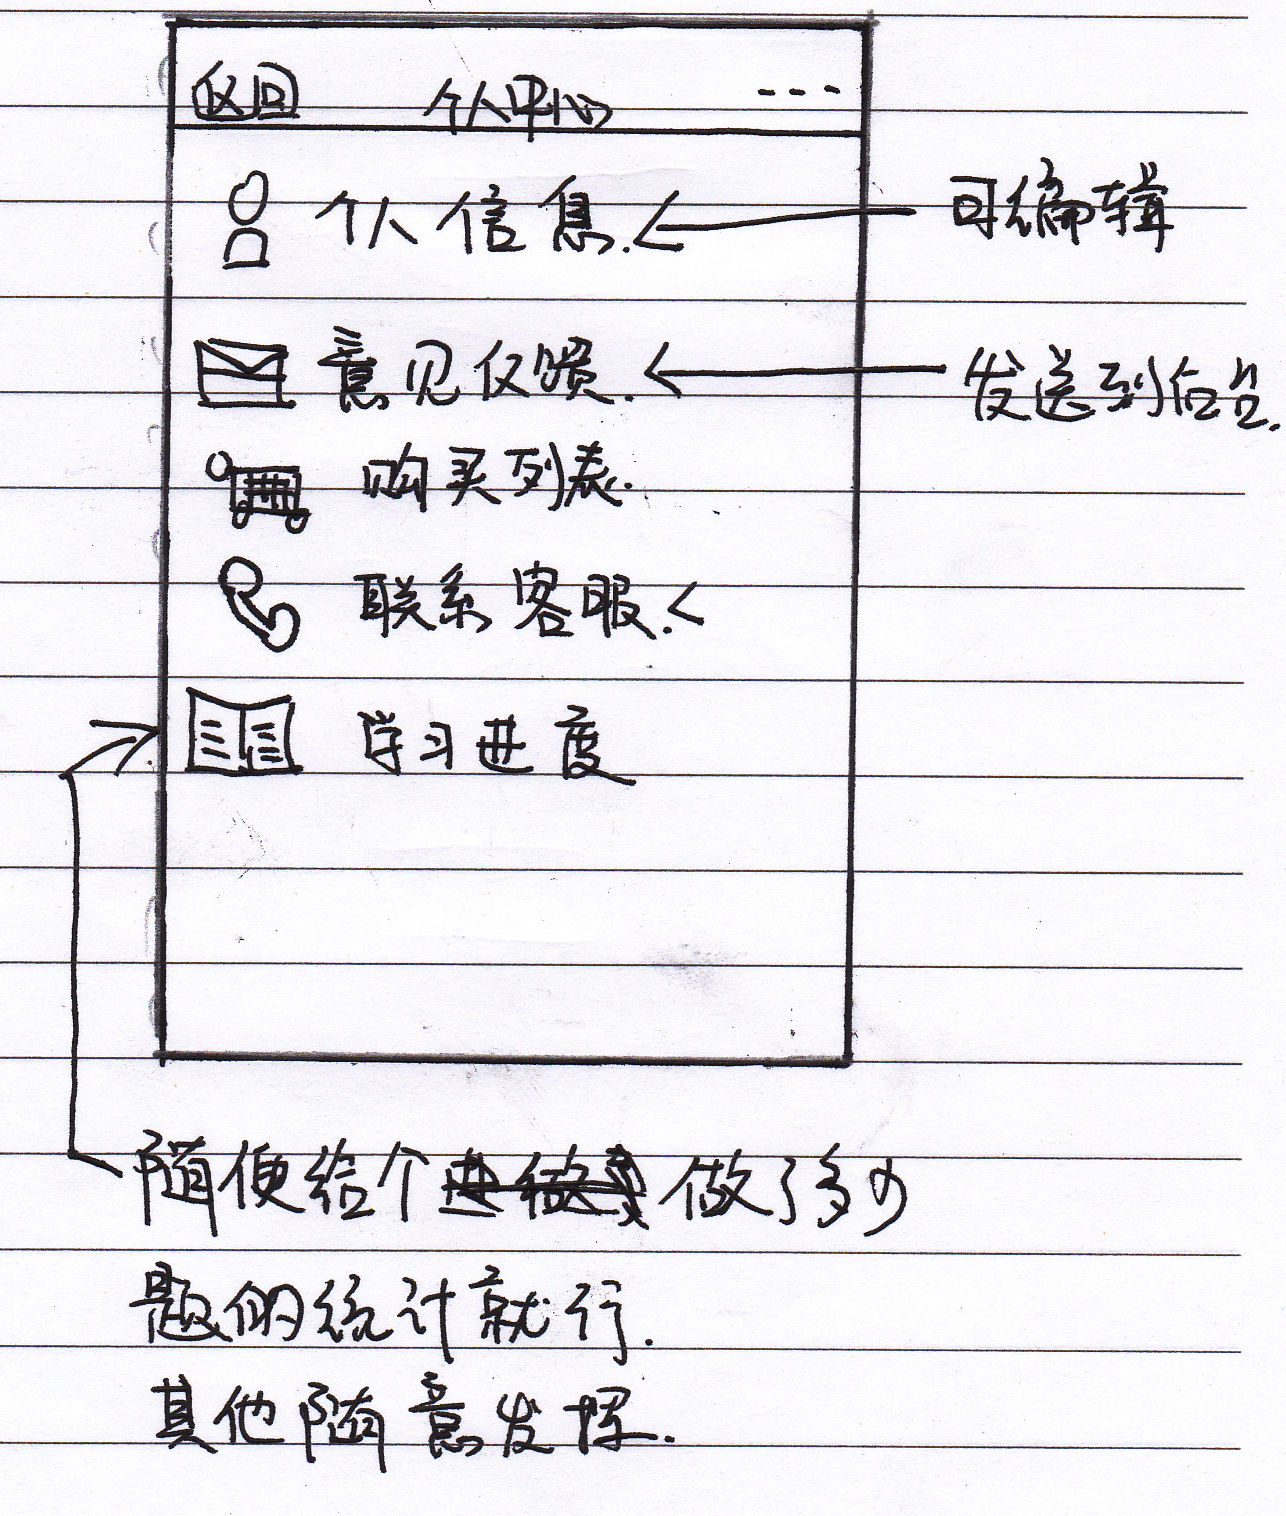 返回 个人中心 ---
个人信息. < 可编辑
意见反馈. 发送到后台.
购买列表.
联系客服. <
学习进度
随便给个 做了多少
题的统计就行.
其他随意发挥.